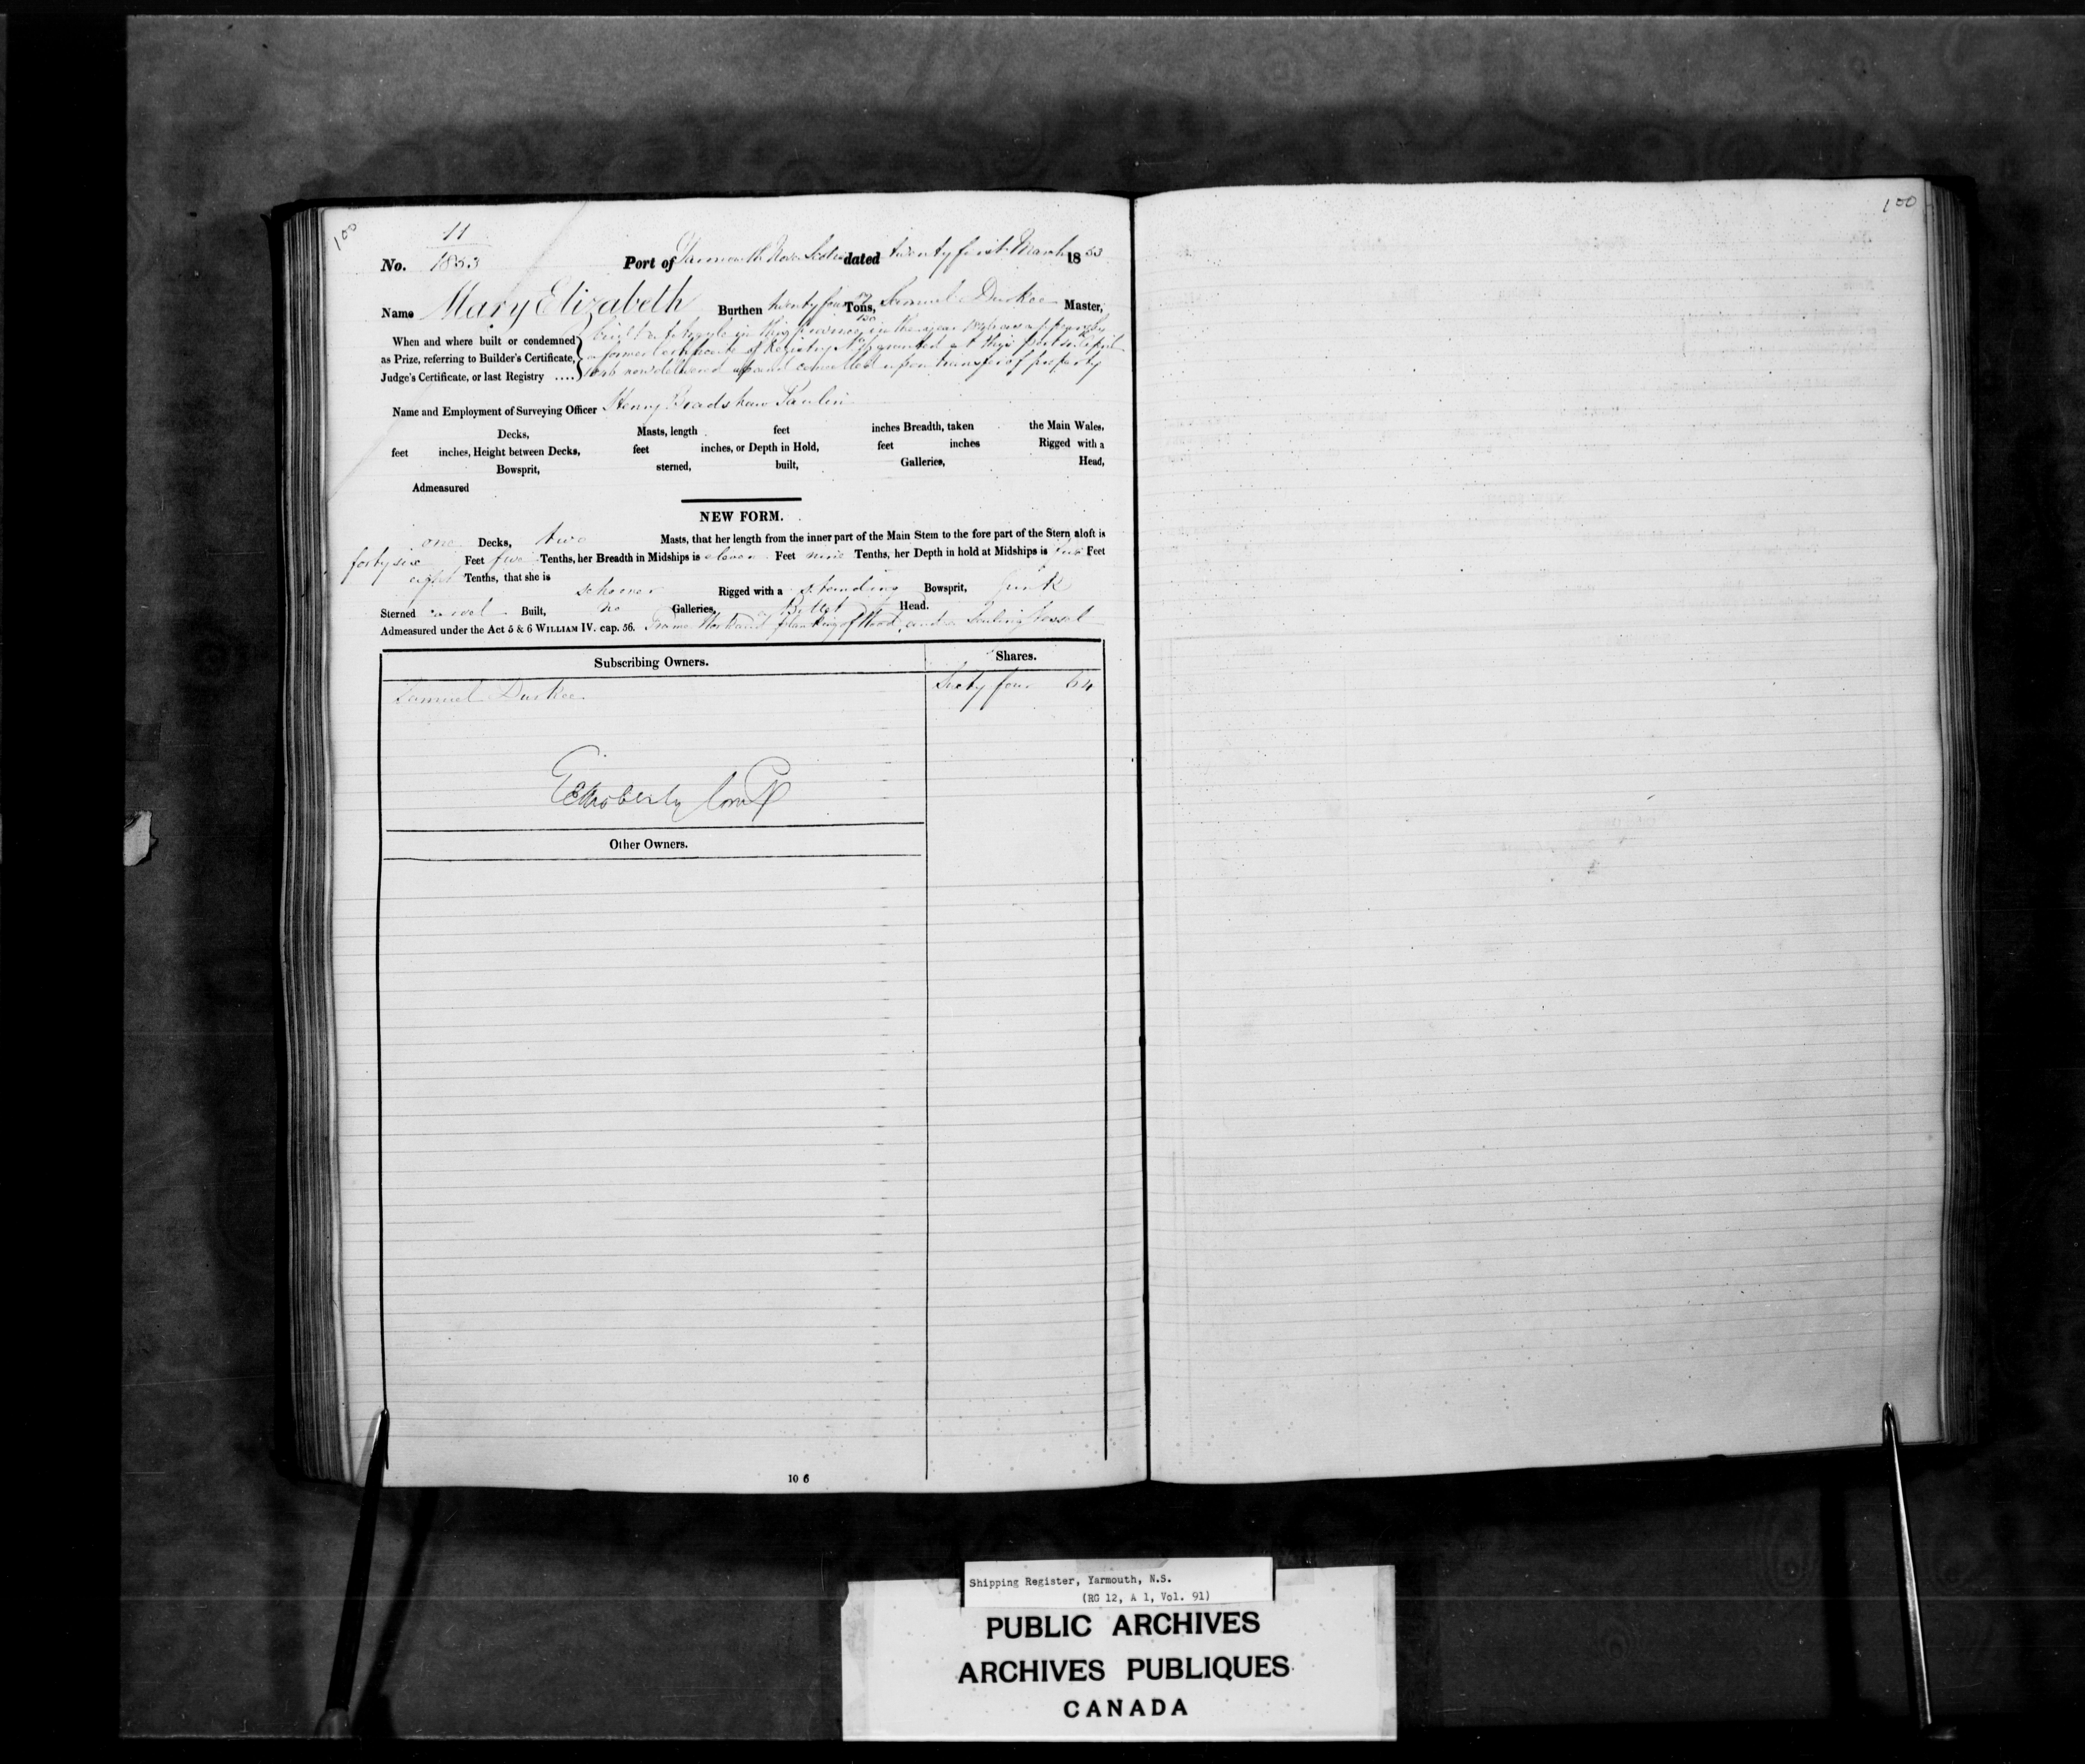 100
100
11
No. 1853 Port of Yarmouth Nova Scotia dated twenty first March 1853
Name Mary Elizabeth Burthen twenty four 17/130 Tons, Samuel Durkee Master,
When and where built or condemned built at Argyle in this Province in the year as appears by
as Prize, referring to Builder's Certificate, a former Certificate of Registry granted at this port April
Judge's Certificate, or last Registry .... 1846 now delivered up and cancelled upon transfer of property
Name and Employment of Surveying Officer Henry Bradshaw
Decks, Masts, length feet inches Breadth, taken the Main Wales,
feet inches, Height between Decks, feet inches, or Depth in Hold, feet inches Rigged with a
Bowsprit, sterned, built, Galleries, Head,
Admeasured
NEW FORM.
one Decks, two Masts, that her length from the inner part of the Main Stem to the fore part of the Stern aloft is
forty six Feet five Tenths, her Breadth in Midships is eleven Feet nine Tenths, her Depth in hold at Midships is Feet
eight Tenths, that she is
schooner Rigged with a standing Bowsprit, pink
Sterned carvel Built, no Galleries, a Billet Head.
Admeasured under the Act 5 & 6 WILLIAM IV. cap. 56. Frame Work and planking of Wood, and a Sailing Vessel
Subscribing Owners. Shares.
Samuel Durkee Sixty four 64
Other Owners.
10 6
Shipping Register, Yarmouth, N.S.
(RG 12, A 1, Vol. 91)
PUBLIC ARCHIVES
ARCHIVES PUBLIQUES
CANADA